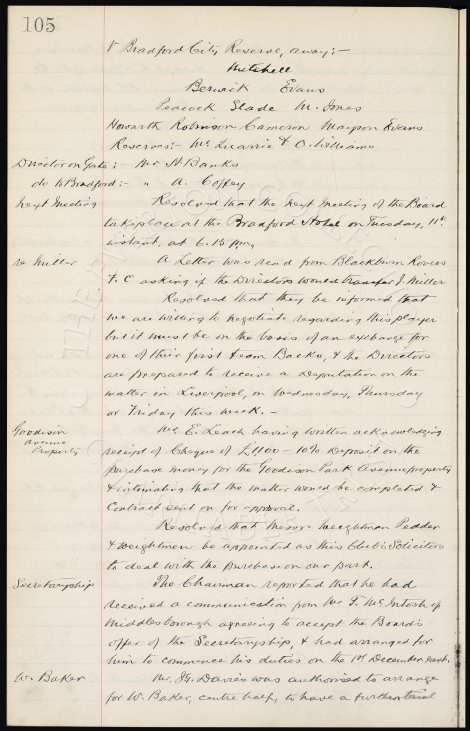 105
V Bradford City Reserve, away:-
Mitchell
Berwick Evans
Peacock Slade M. Jones
Howarth Robinson Cameron Mayson Evans
Reserves:- McQuarrie & O. Williams
Director on Gate:- Mr H Banks
do to Bradford:- " A. Coffey
next Meeting Resolved that the next Meeting of the Board
take place at the Bradford Hotel on Tuesday, 11th
instant, at 6.15 pm,
re Miller A Letter was read from Blackburn Rovers
F.C asking if the Directors would transfer J. Miller
Resolved that they be informed that
we are willing to negotiate regarding this player
but it must be on the basis of an exchange for
one of their first team Backs, & the Directors
are prepared to receive a Deputation on the
matter in Liverpool, on Wednesday, Thursday
or Friday this week. -
Goodison Avenue Property Mr E. Leach having written acknowledging
receipt of Cheque of £1100 - 10% Deposit on the
purchase money for the Goodison Park Avenue property
& intimating that the matter would be completed &
Contract sent on for approval.
Resolved that Messrs Weightman Pedder
& Weightman be appointed as this Club's Solicitors
to deal with the purchase on our part.
Secretaryship The Chairman reported that he had
received a communication from Mr T. McIntosh of
Middlesborough agreeing to accept the Board's
offer of the Secretaryship, & had arranged for
him to commence his duties on the 1st December next.
W. Baker Mr. Davies was authorised to arrange
for W. Baker, centre half, to have a further trial